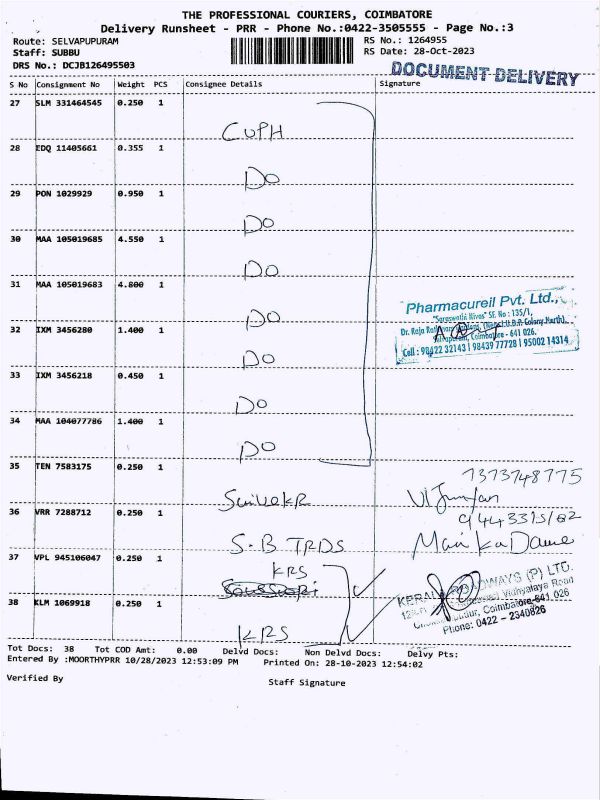 THE PROFESSIONAL COURIERS, COIMBATORE
Delivery Runsheet - PRR - Phone No.:0422-3505555 - Page No.:3
Route: SELVAPUPURAM
RS No.: 1264955
Staff: SUBBU
RS Date: 28-Oct-2023
DRS No.: DCJB126495503
DOCUMENT DELIVERY
S No Consignment No Weight PCS Consignee Details Signature
27 SLM 331464545 0.250 1
CUPH
28 EDQ 11405661 0.355 1
DO
29 PON 1029929 0.950 1
DO
30 MAA 105019685 4.550 1
DO
31 MAA 105019683 4.800 1
DO
Pharmacureil Pvt. Ltd.,
"Saraswathi Nivas" SF. No : 135/1,
Coimbatore - 641 026.
Cell : 98422 32143 | 98439 77728 | 95002 14314
32 IXM 3456280 1.400 1
DO
33 IXM 3456218 0.450 1
DO
34 MAA 104077786 1.400 1
DO
35 TEN 7583175 0.250 1
7373748775
36 VRR 7288712 0.250 1
S.B TRDS
37 VPL 945106047 0.250 1
KRS
38 KLM 1069918 0.250 1
KRS
ROADWAYS (P) LTD.
Vidhyalaya Road
Coimbatore-641 026
Phone: 0422 - 2340826
Tot Docs: 38 Tot COD Amt: 0.00 Delvd Docs: Non Delvd Docs: Delvy Pts:
Entered By :MOORTHYPRR 10/28/2023 12:53:09 PM Printed On: 28-10-2023 12:54:02
Verified By Staff Signature